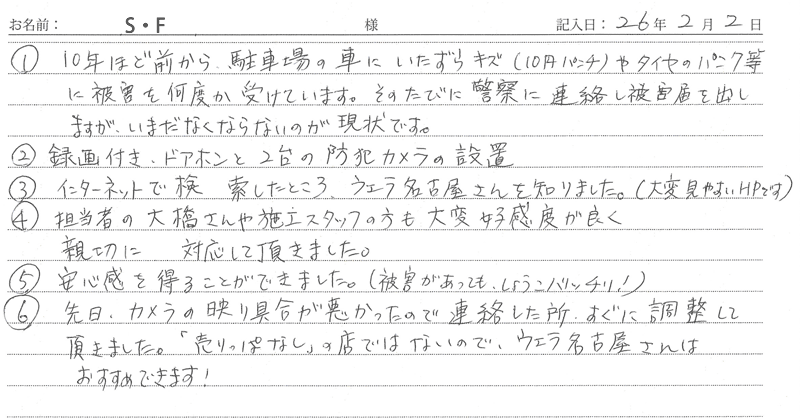 お名前： S・F 様 記入日：26年2月2日
① 10年ほど前から、駐車場の車にいたずらキズ（10円パンチ）やタイヤのパンク等
に被害を何度か受けています。そのたびに警察に連絡し被害届を出し
ますが、いまだなくならないのが現状です。
② 録画付き、ドアホンと2台の防犯カメラの設置
③ インターネットで検 索したところ、ウェラ名古屋さんを知りました。（大変見やすいHPです）
④ 担当者の大橋さんや施工スタッフの方も大変好感度が良く
親切に 対応して頂きました。
⑤ 安心感を得ることができました。（被害があっても、しょうこバッチリ！）
⑥ 先日、カメラの映り具合が悪かったので連絡した所、すぐに調整して
頂きました。「売りっぱなし」の店ではないので、ウェラ名古屋さんは
おすすめできます！